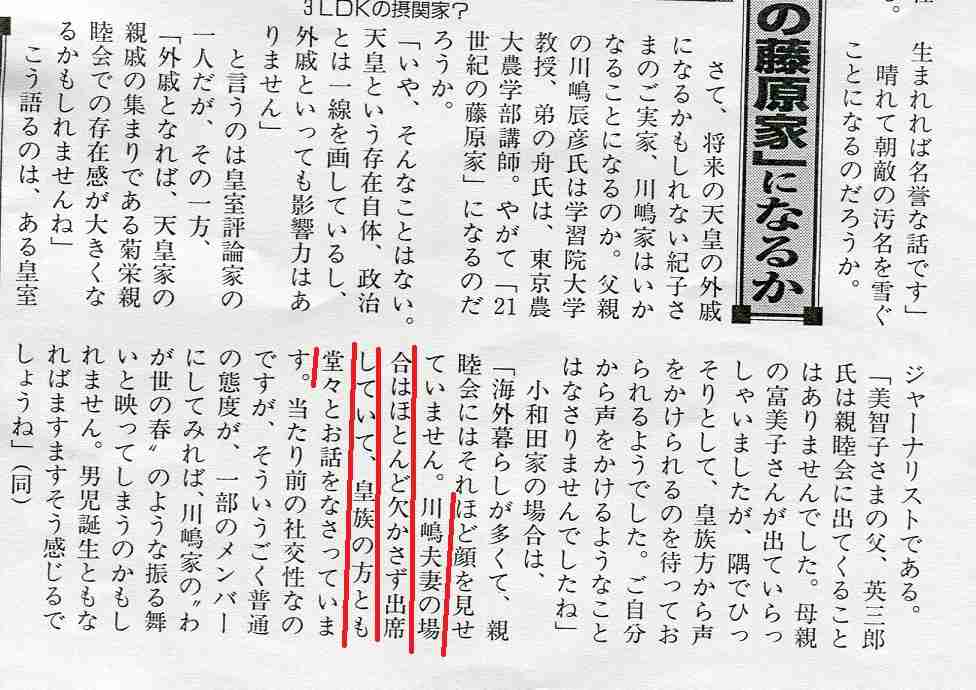 3LDKの摂関家?
る。
生まれれば名誉な話です」
晴れて朝敵の汚名を雪ぐ
ことになるのだろうか。
の藤原家」になるか
さて、将来の天皇の外戚
になるかもしれない紀子さ
まのご実家、川嶋家はいか
なることになるのか。父親
の川嶋辰彦氏は学習院大学
教授、弟の舟氏は、東京農
大農学部講師。やがて「21
世紀の藤原家」になるのだ
ろうか。
「いや、そんなことはない。
天皇という存在自体、政治
とは一線を画しているし、
外戚といっても影響力はあ
りません」
と言うのは皇室評論家の
一人だが、その一方、
「外戚となれば、天皇家の
親戚の集まりである菊栄親
睦会での存在感が大きくな
るかもしれませんね」
こう語るのは、ある皇室
ジャーナリストである。
「美智子さまの父、英三郎
氏は親睦会に出てくること
はありませんでした。母親
の富美子さんが出ていらっ
しゃいましたが、隅でひっ
そりとして、皇族方から声
をかけられるのを待ってお
られるようでした。ご自分
から声をかけるようなこと
はなさりませんでしたね」
小和田家の場合は、
「海外暮らしが多くて、親
睦会にはそれほど顔を見せ
ていません。川嶋夫妻の場
合はほとんど欠かさず出席
していて、皇族の方とも
堂々とお話をなさっていま
す。当たり前の社交性なの
ですが、そういうごく普通
の態度が、一部のメンバー
にしてみれば、川嶋家の〝わ
が世の春〟のような振る舞
いと映ってしまうのかもし
れません。男児誕生ともな
ればますますそう感じるで
しょうね」(同)